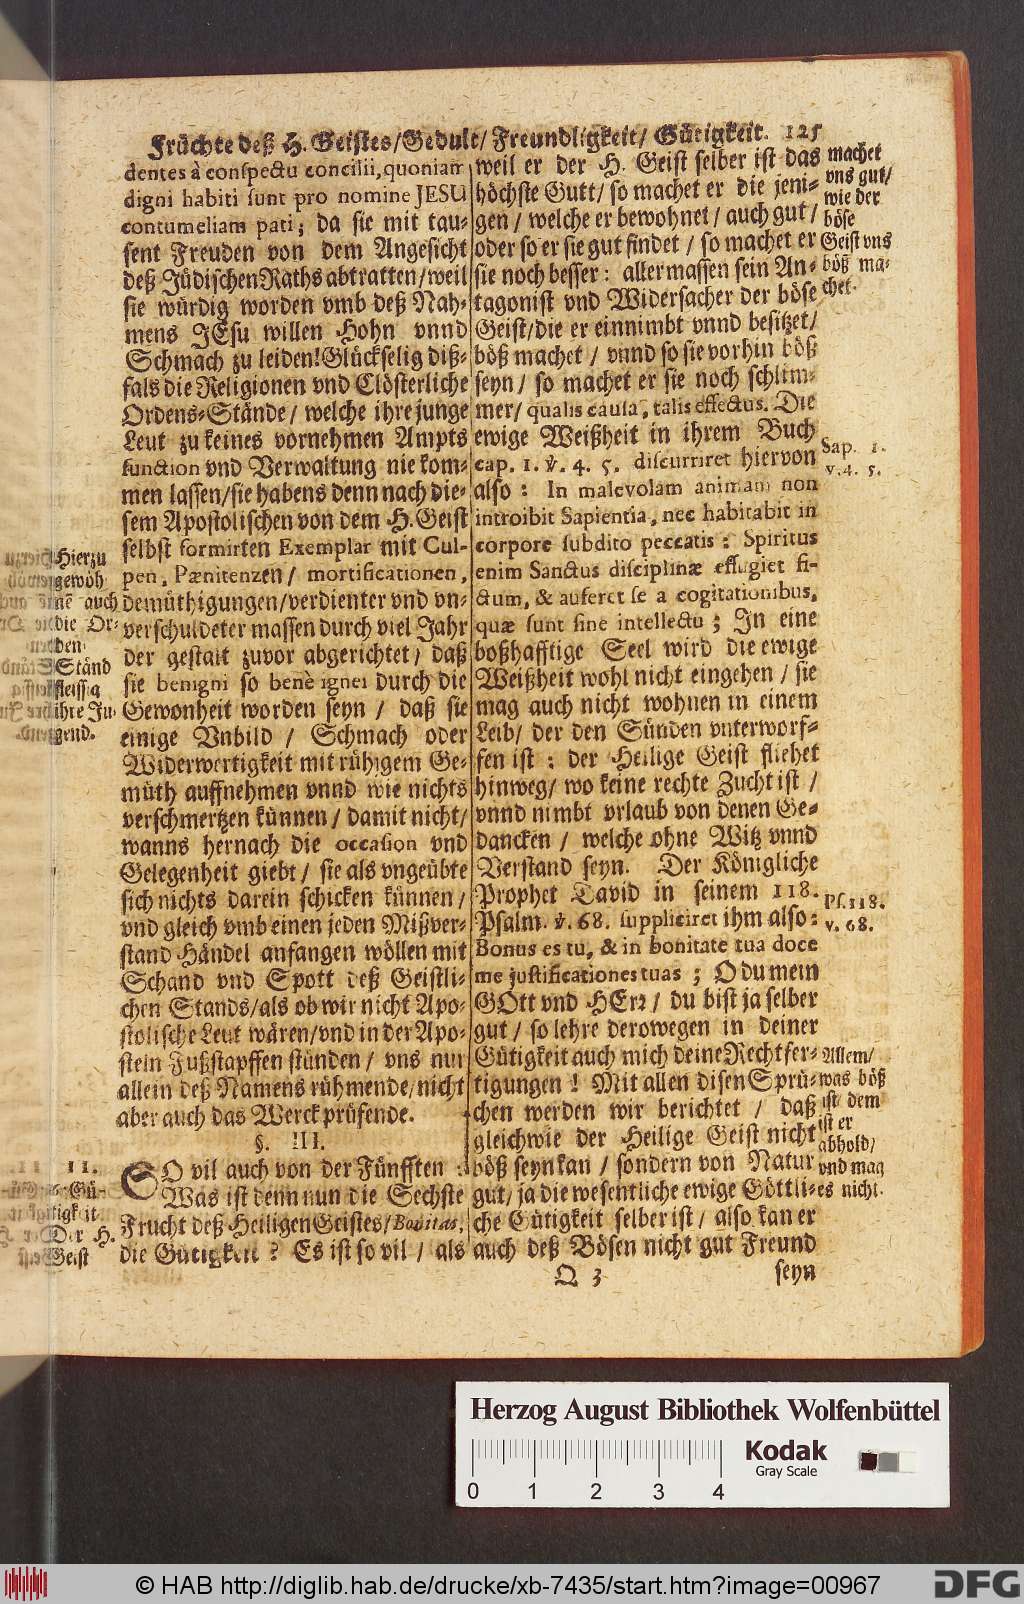 Früchte deß H. Geistes/Gedult/Freundligkeit/Gütigkeit. 125
dentes à conspectu concilii, quoniam
digni habiti sunt pro nomine JESU
contumeliam pati; da sie mit tau-
sent Freuden von dem Angesicht
deß Jüdischen Raths abtratten/weil
sie würdig worden vmb deß Nah-
mens JEsu willen Hohn vnnd
Schmach zu leiden! Glückselig diß-
fals die Religionen vnd Clösterliche
Ordens-Stände/ welche ihre junge
Leut zu keines vornehmen Ampts
function vnd Verwaltung nie kom-
men lassen/sie habens denn nach die-
sem Apostolischen von dem H. Geist
selbst formirten Exemplar mit Cul-
pen, Pænitenzen/ mortificationen,
demüthigungen/verdienter vnd vn-
verschuldeter massen durch viel Jahr
der gestalt zuvor abgerichtet/ daß
sie benigni so benè ignei durch die
Gewonheit worden seyn / daß sie
einige Vnbild / Schmach oder
Widerwertigkeit mit rühigem Ge-
müth auffnehmen vnnd wie nichts
verschmertzen künnen/ damit nicht/
wanns hernach die occasion vnd
Gelegenheit giebt/ sie als vngeübte
sich nichts darein schicken künnen/
vnd gleich vmb einen jeden Mißver-
stand Händel anfangen wöllen mit
Schand vnd Spott deß Geistli-
chen Stands/als ob wir nicht Apo-
stolische Leut wären/vnd in der Apo-
steln Fußstapffen stünden/ vns nur
allein deß Namens rühmende/nicht
aber auch das Werck prüfende.
§. III.
SO vil auch von der Fünfften :
Was ist denn nun die Sechste
Frucht deß Heiligen Geistes/ Bonitas,
die Gütigkeit? Es ist so vil / als
Hierzu
gewöh
nē auch
die Or-
den-
Ständ
fleissig
ihre Ju-
gend.
II.
Gü-
tigkeit
Der H.
Geist
weil er der H. Geist selber ist das
höchste Gutt/ so machet er die jeni-
gen/ welche er bewohnet/ auch gut/
oder so er sie gut findet / so machet er
sie noch besser: allermassen sein An-
tagonist vnd Widersacher der böse
Geist/die er einnimbt vnnd besitzet/
böß machet / vnnd so sie vorhin böß
seyn/ so machet er sie noch schlim-
mer/ qualis causa, talis effectus. Die
ewige Weißheit in ihrem Buch
cap. 1. v. 4. 5. discurriret hiervon
also: In malevolam animam non
introibit Sapientia, nec habitabit in
corpore subdito peccatis: Spiritus
enim Sanctus disciplinæ effugiet fi-
ctum, & auferet se a cogitationibus,
quæ sunt sine intellectu; In eine
boßhafftige Seel wird die ewige
Weißheit wohl nicht eingehen/ sie
mag auch nicht wohnen in einem
Leib/ der den Sünden vnterworf-
fen ist: der Heilige Geist fliehet
hinweg/ wo keine rechte Zucht ist /
vnnd nimbt vrlaub von denen Ge-
dancken / welche ohne Witz vnnd
Verstand seyn. Der Königliche
Prophet David in seinem 118.
Psalm. v. 68. suppliciret ihm also:
Bonus es tu, & in bonitate tua doce
me justificationes tuas; O du mein
GOtt vnd HErr/ du bist ja selber
gut/ so lehre derowegen in deiner
Gütigkeit auch mich deine Rechtfer-
tigungen! Mit allen disen Sprü-
chen werden wir berichtet / daß
gleichwie der Heilige Geist nicht
böß seyn kan/ sondern von Natur
gut/ ja die wesentliche ewige Göttli-
che Gütigkeit selber ist/ also kan er
auch deß Bösen nicht gut Freund
machet
vns gut/
wie der
böse
Geist vns
böß ma-
chet.
Sap. 1.
v. 4. 5.
Ps. 118.
v. 68.
Allem/
was böß
ist dem
ist er
abhold/
vnd mag
es nicht.
Q 3
seyn
Herzog August Bibliothek Wolfenbüttel
Kodak
Gray Scale
0 1 2 3 4
© HAB http://diglib.hab.de/drucke/xb-7435/start.htm?image=00967
DFG